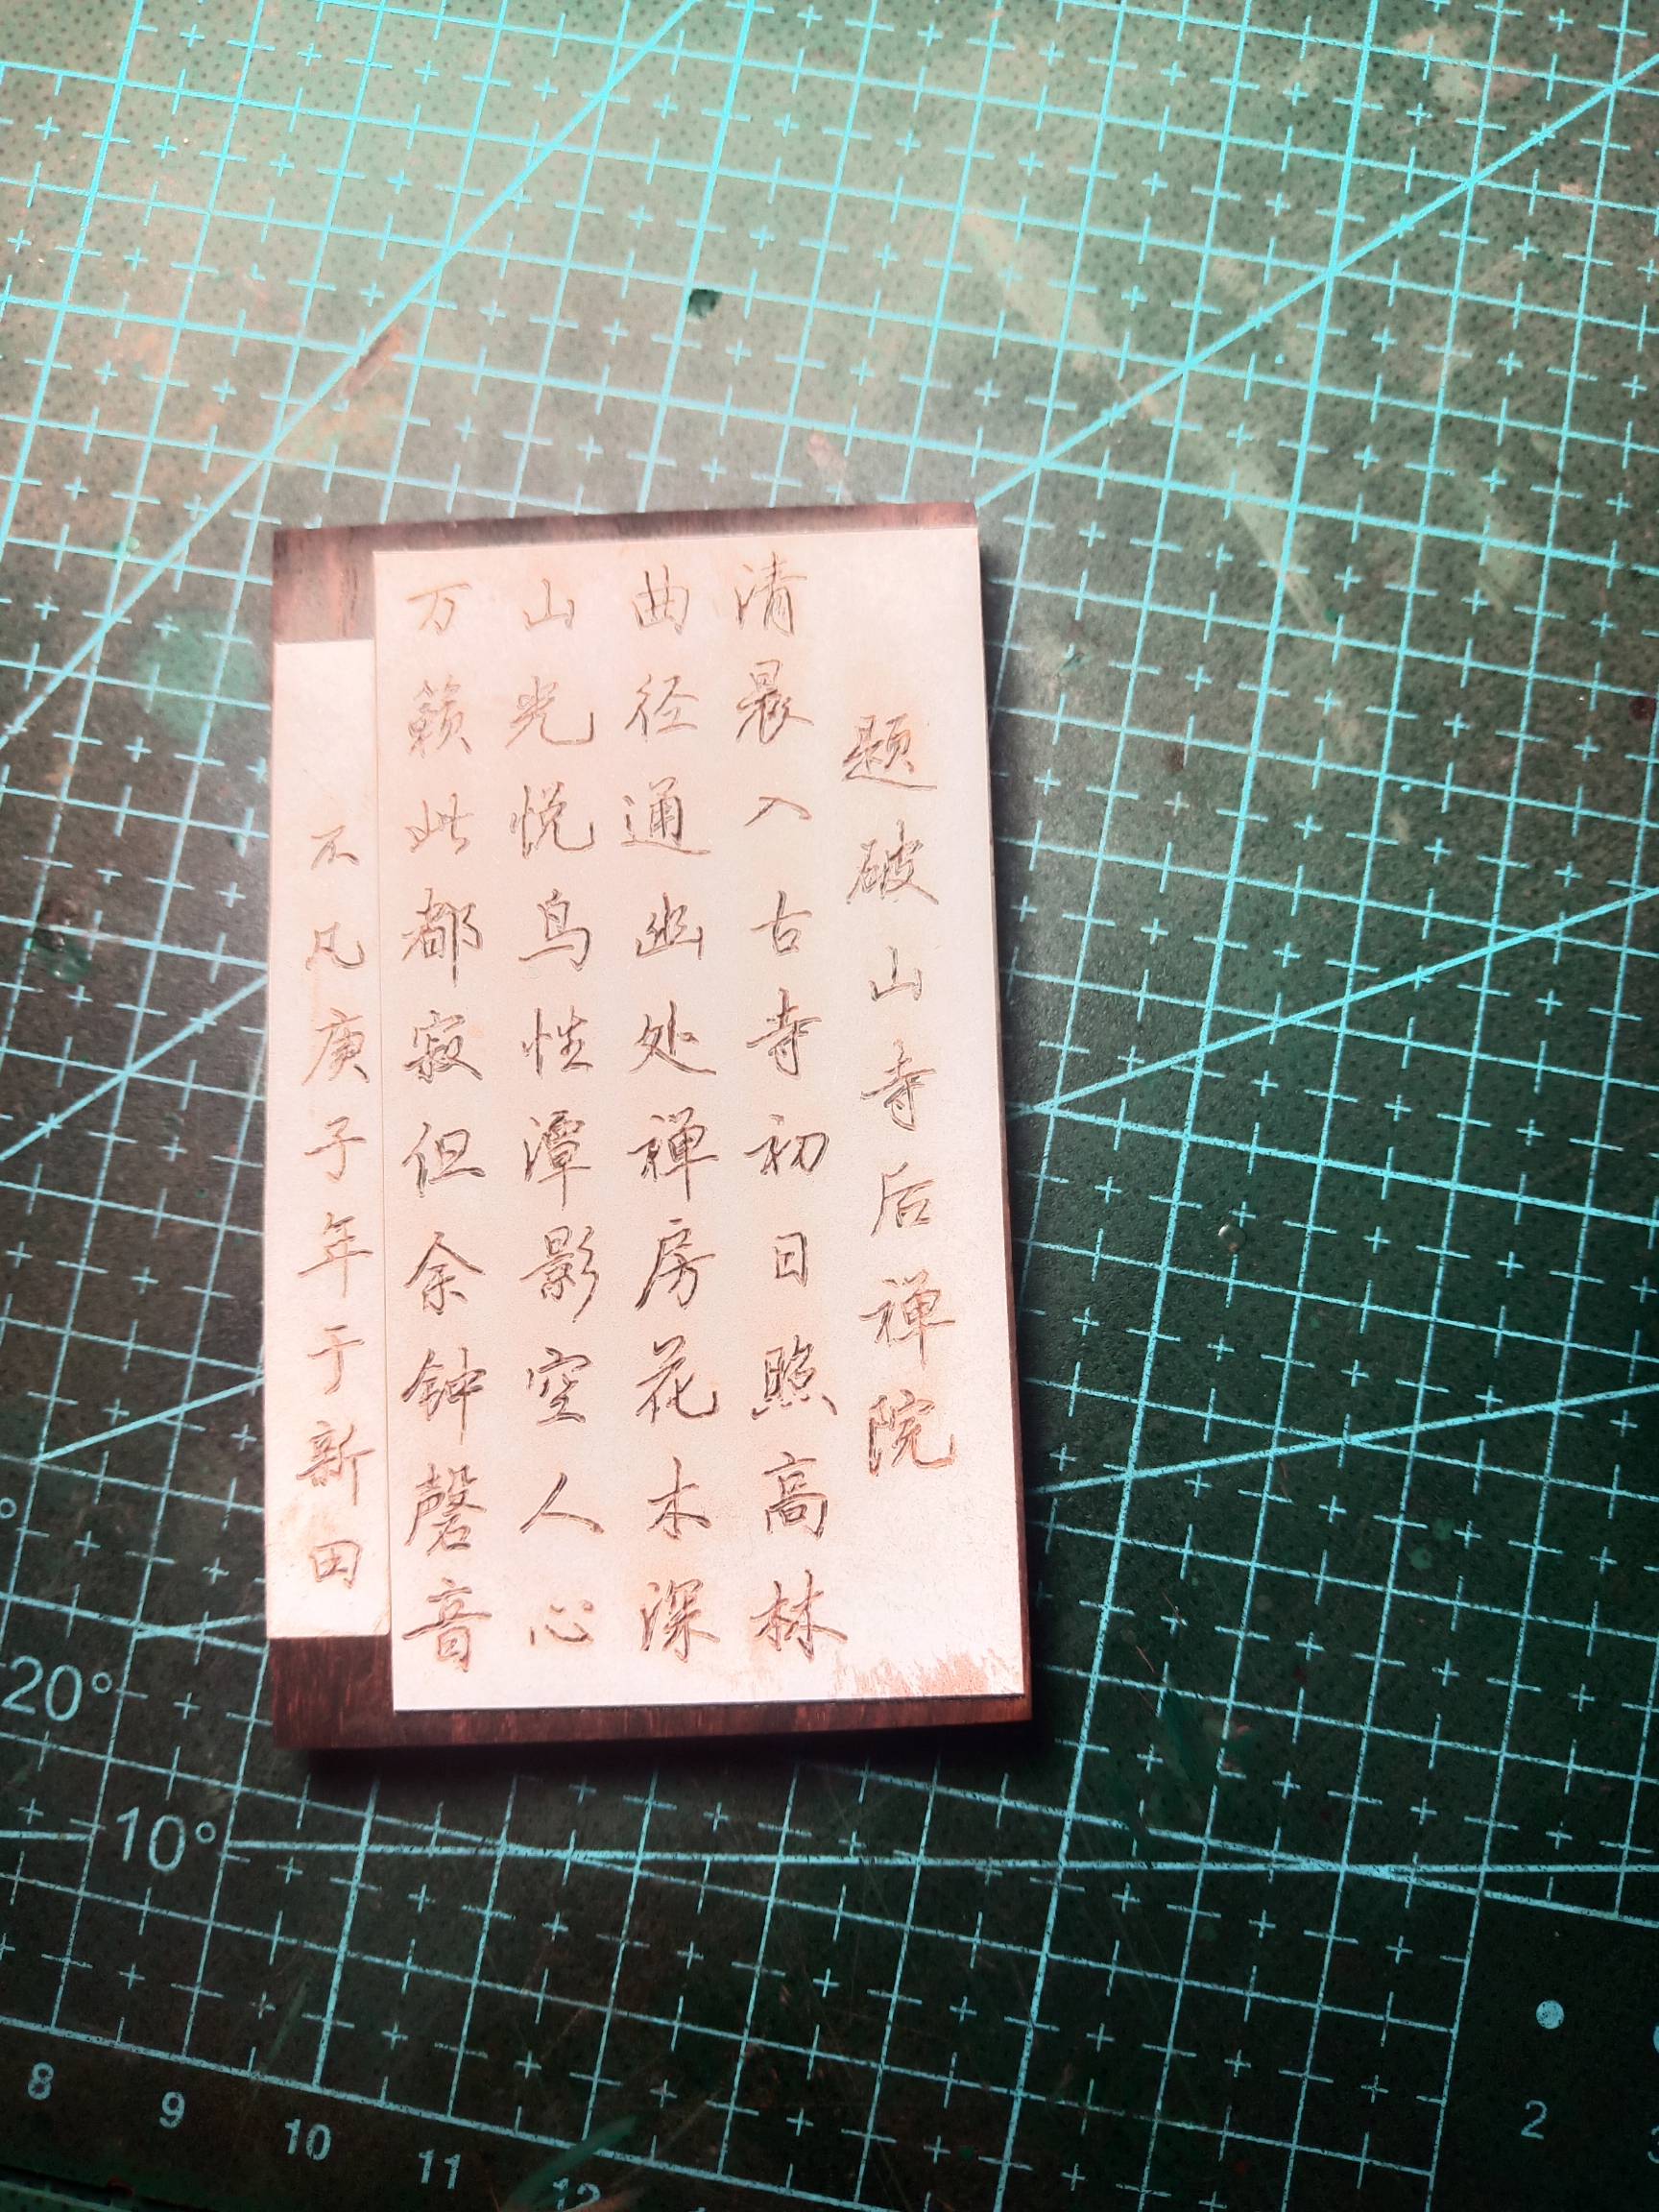 题破山寺后禅院
清晨入古寺初日照高林
曲径通幽处禅房花木深
山光悦鸟性潭影空人心
万籁此都寂但余钟磬音
不凡庚子年于新田
20°
10°
8 9 10 11 12
2